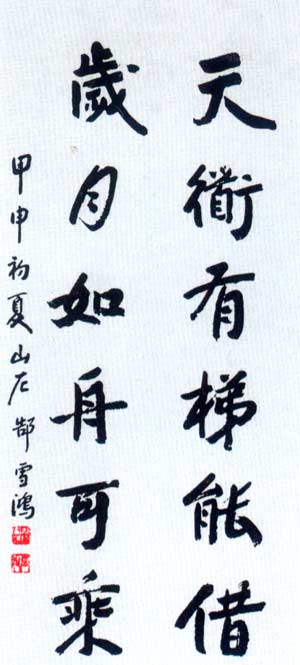 天有梯能借
歲月如舟可乘
甲申初夏山左郜雪鴻